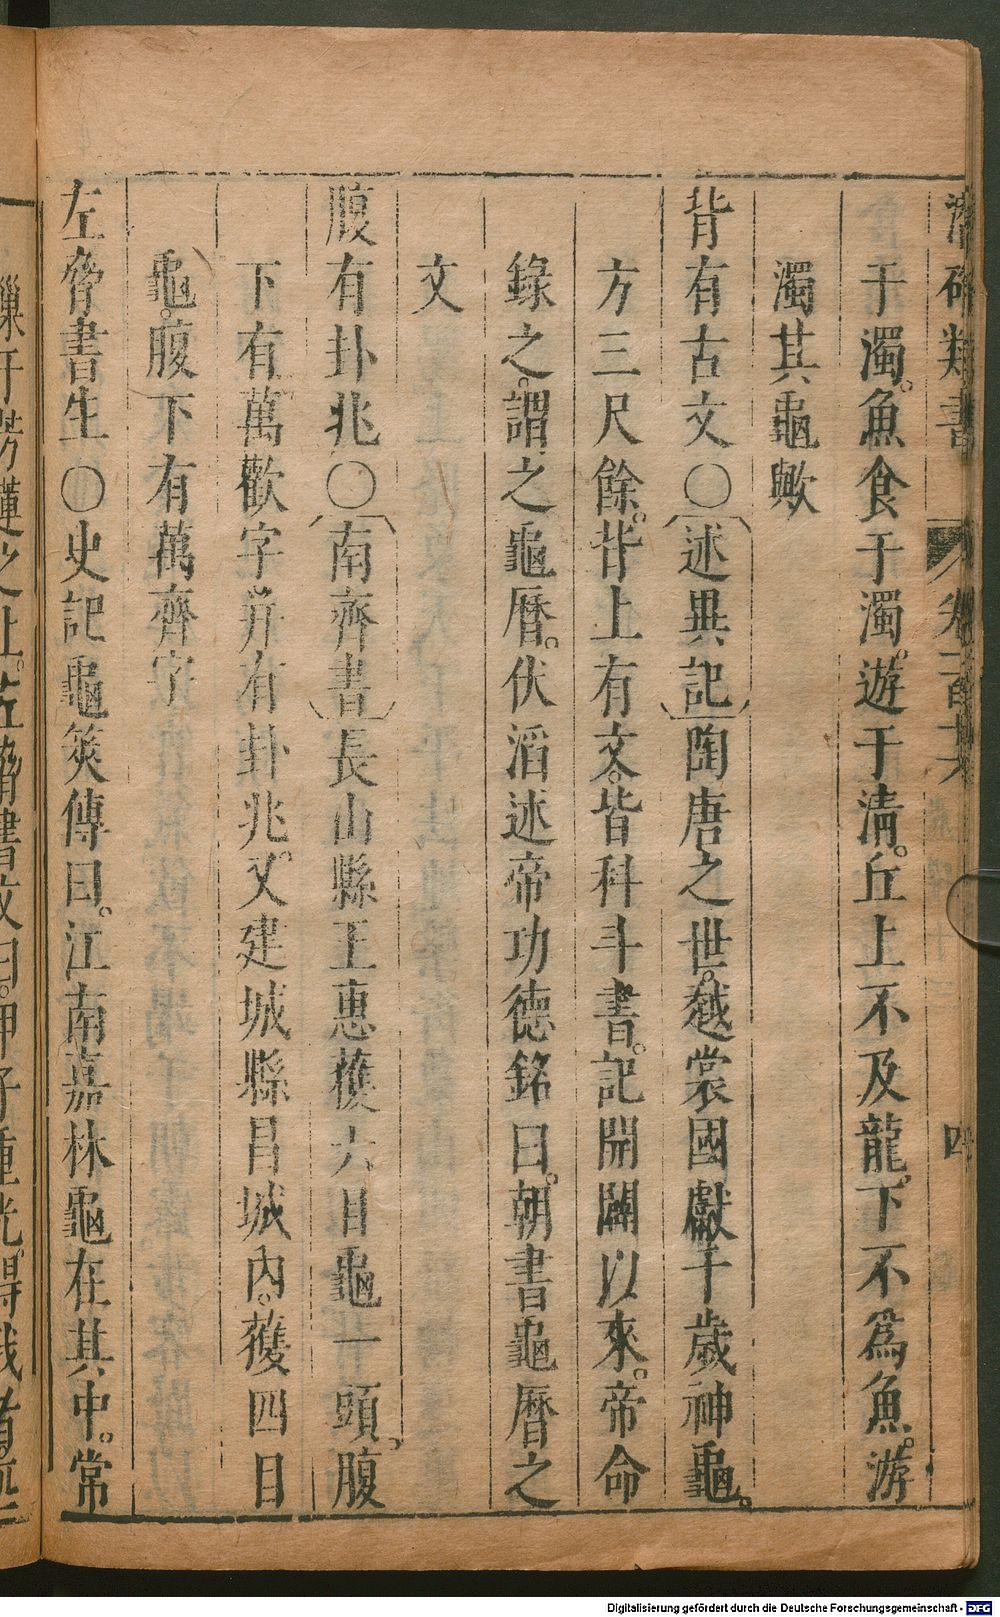 潛確類書 卷一百十六 四
于濁。魚食于濁。遊于淸。丘上不及龍。下不爲魚。游
濁其龜歟
背有古文〇〔述異記〕陶唐之世。越裳國獻千歲神龜。
方三尺餘。背上有文。皆科斗書。記開闢以來。帝命
錄之。謂之龜曆。伏滔述帝功德銘曰。朝書龜曆之
文
腹有卦兆〇〔南齊書〕長山縣王惠獲六目龜一頭。腹
下有萬歡字。幷有卦兆。又建城縣昌城內。獲四目
龜。腹下有萬齊字
左脅書生〇史記龜筴傳曰。江南嘉林龜在其中。常
巢于芳蓮之上。左脅書文曰。甲子重光。得我者
Digitalisierung gefördert durch die Deutsche Forschungsgemeinschaft - DFG